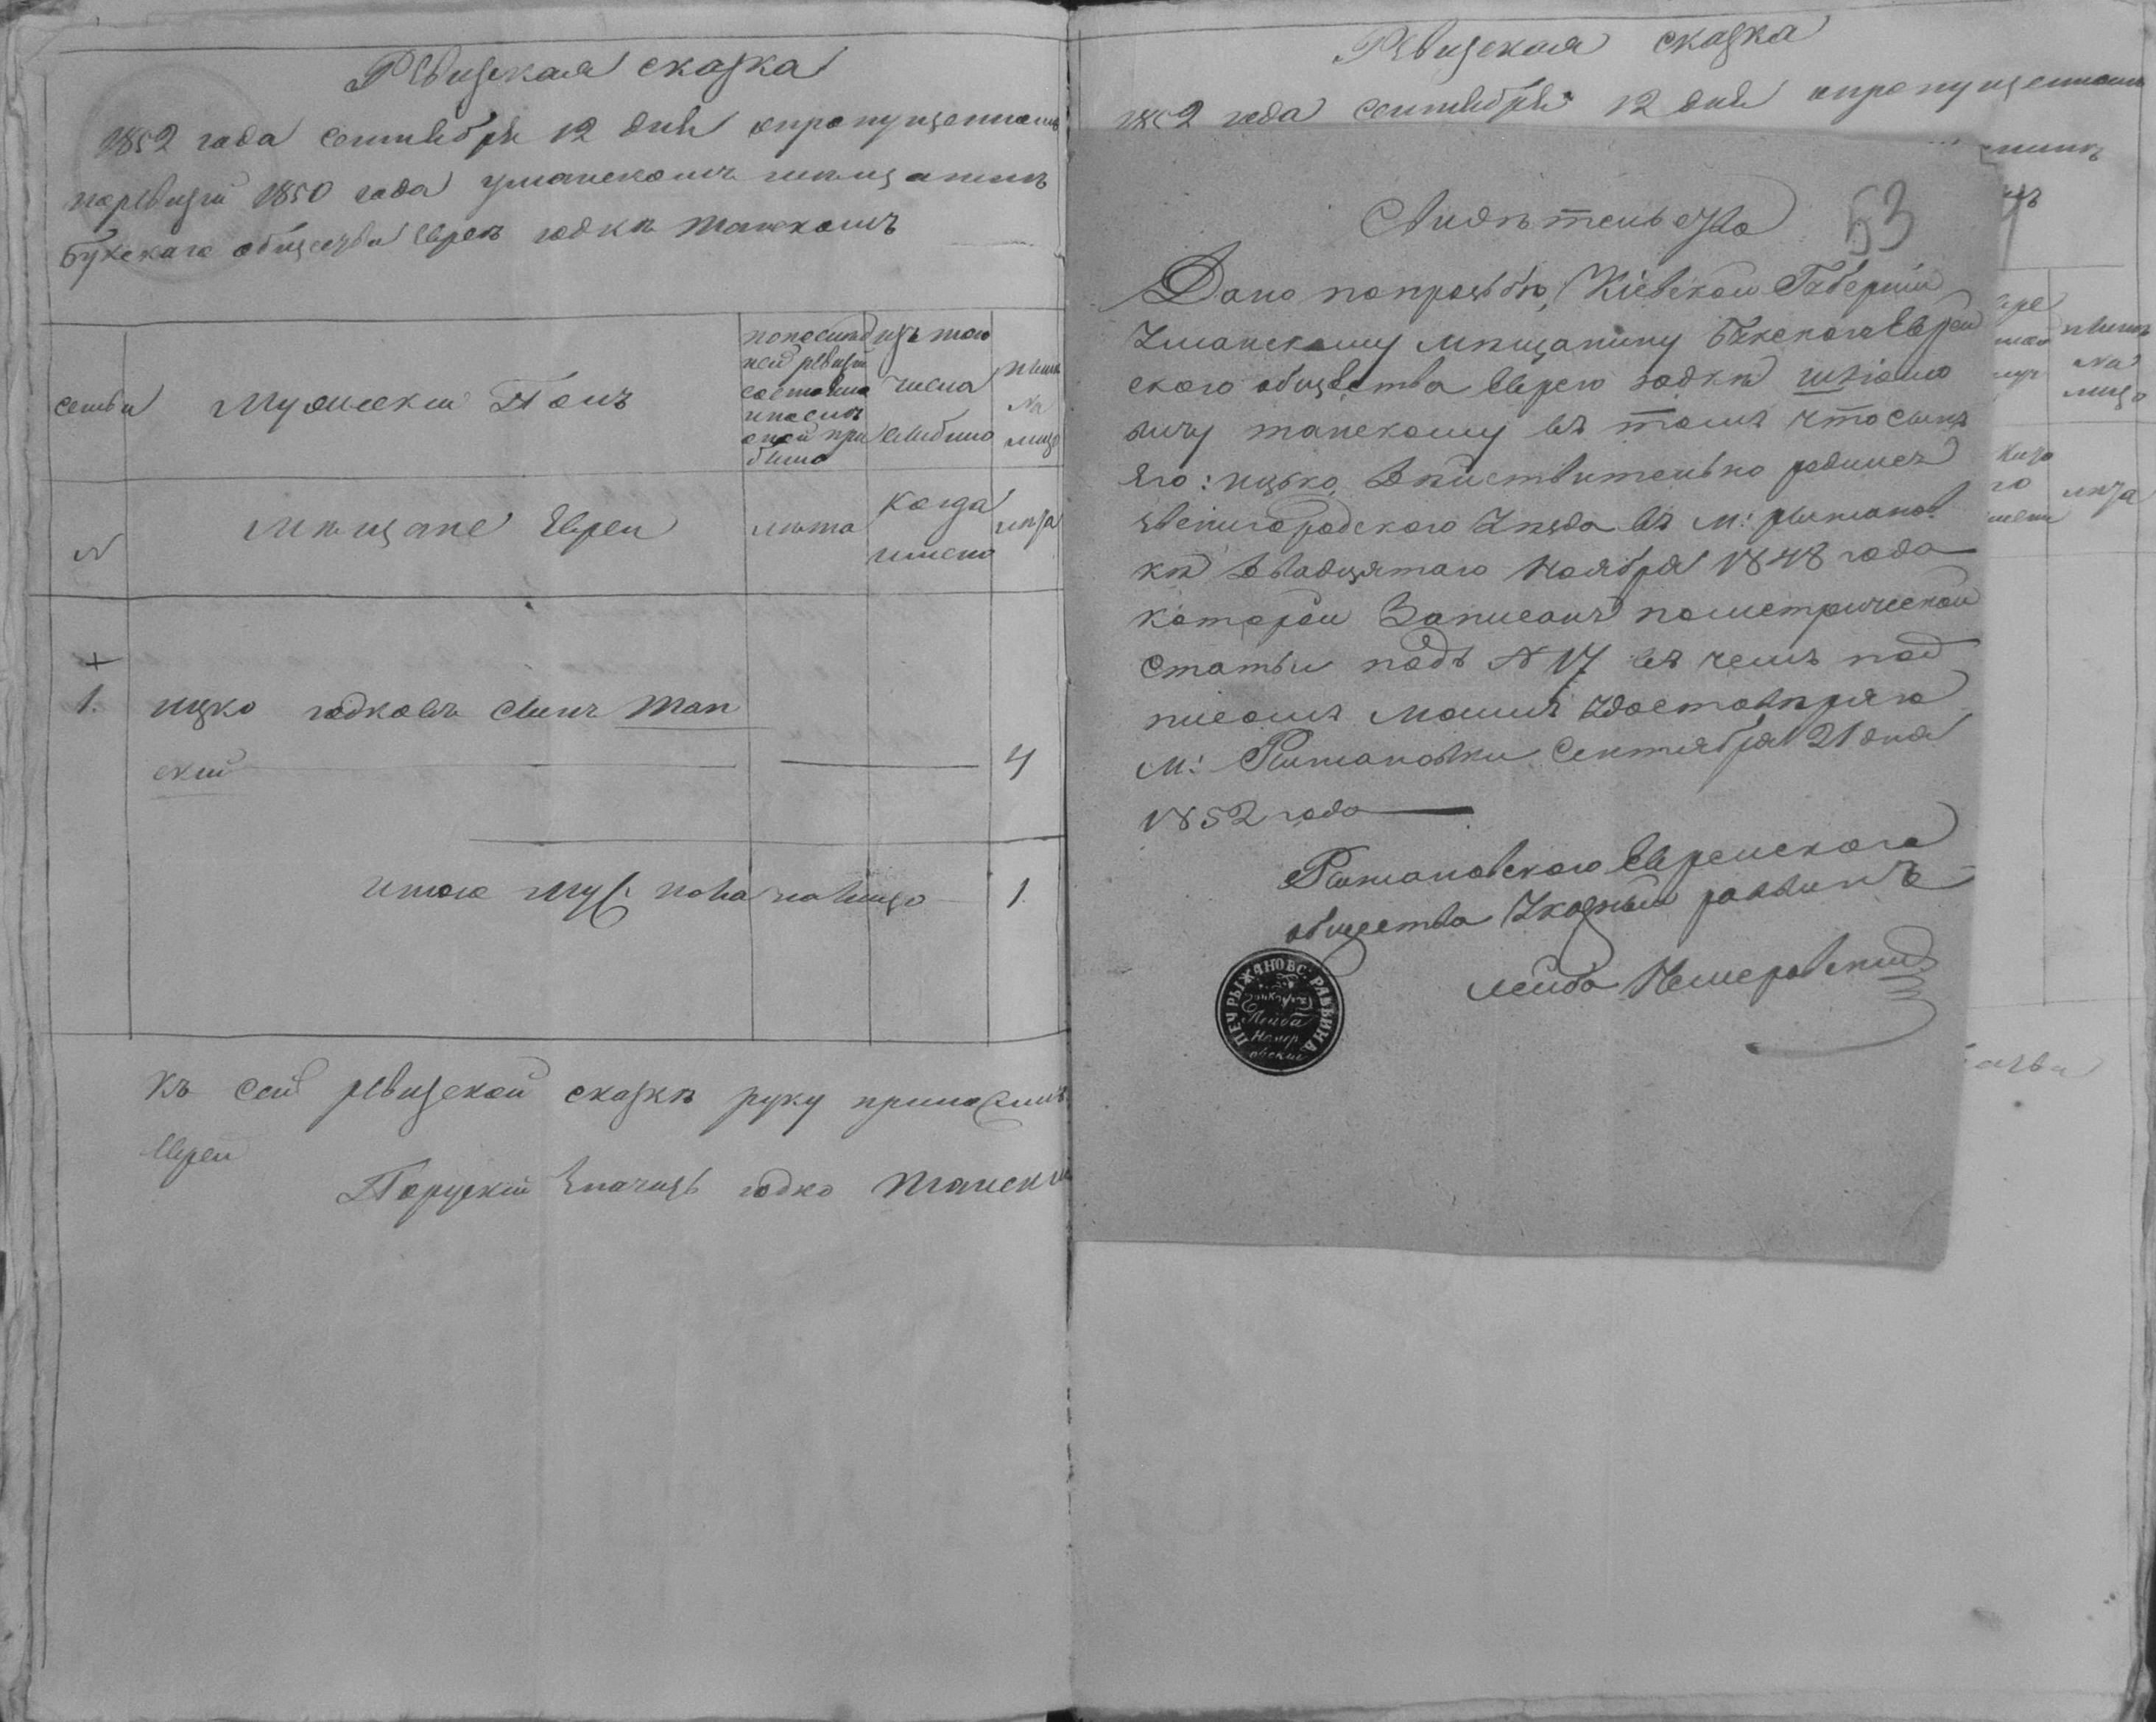 Ревизская сказка
1852 года сентября 12 дня опропущенномъ
поревизіи 1850 года уманскомъ мещанинѣ
Букскаго общества Евреѣ юдкѣ Танскомъ
семьи
Мужескій Полъ
попослѣд
ней ревизіи
состояло
и после
оной при
было
изъ того
числа
выбыло
ныне
На
лицо
N
Мѣщане Евреи
лѣта
когда
именно
лѣта
1. ицко юдковъ сынъ Тан
скій 4
итого муж: пола налицо 1
Къ сей ревизской сказкѣ руку приложилъ
Еврей
юдко Танскій
Ревизская сказка
1852 года сентября 12 дня опропущенномъ
Свидѣтельство 53
Дано попрозьбѣ Кіевской Губерніи
Уманскому мѣщанину Букского Еврей
ского общества Еврею юдкѣ шліомо
вичу танскому въ томъ что сынъ
Яго: ицько, дѣйствительно родился
Звенигородского Уезда въ м: рыжанов
кѣ двадцятаго Ноября 1848 года
которой Записанъ пометрической
Статьи подъ N 17 въ чемъ под
писомъ моимъ Удостовѣряю
м: Рыжановки Сентября 21 дня
1852 года
Рыжановского Еврейского
общества Указный раввинъ
Лейба Немеровский
ПЕЧ РЫЖАНОВС: РАВВИНА
Лейба
Немер
овский
На
лицо
лѣта